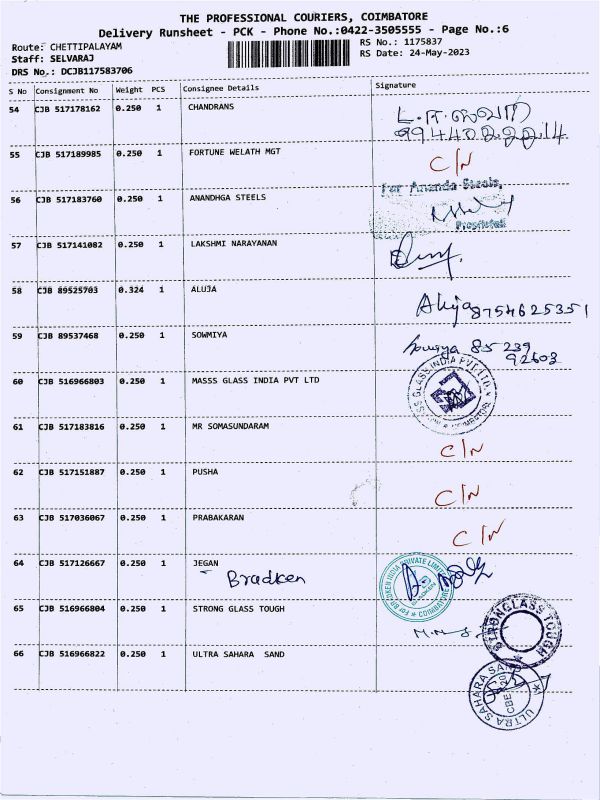 THE PROFESSIONAL COURIERS, COIMBATORE
Delivery Runsheet - PCK - Phone No.:0422-3505555 - Page No.:6
Route: CHETTIPALAYAM RS No.: 1175837
Staff: SELVARAJ RS Date: 24-May-2023
DRS No.: DCJB117583706
S No Consignment No Weight PCS Consignee Details Signature
54 CJB 517178162 0.250 1 CHANDRANS
55 CJB 517189985 0.250 1 FORTUNE WELATH MGT C/N
For Ananda Steels,
56 CJB 517183760 0.250 1 ANANDHGA STEELS
Proprietor
57 CJB 517141082 0.250 1 LAKSHMI NARAYANAN
58 CJB 89525703 0.324 1 ALUJA
Aluja 8754625351
59 CJB 89537468 0.250 1 SOWMIYA
85 239
92603
60 CJB 516966803 0.250 1 MASSS GLASS INDIA PVT LTD
SS GLASS INDIA PVT LTD. COIMBATORE
61 CJB 517183816 0.250 1 MR SOMASUNDARAM
C/N
62 CJB 517151887 0.250 1 PUSHA
C/N
63 CJB 517036067 0.250 1 PRABAKARAN
C/N
64 CJB 517126667 0.250 1 JEGAN
Bradken
For BRADKEN INDIA PRIVATE LIMITED COIMBATORE
65 CJB 516966804 0.250 1 STRONG GLASS TOUGH
STRONGLASS TOUGH
66 CJB 516966822 0.250 1 ULTRA SAHARA SAND
ULTRA SAHARA SAND
CBE